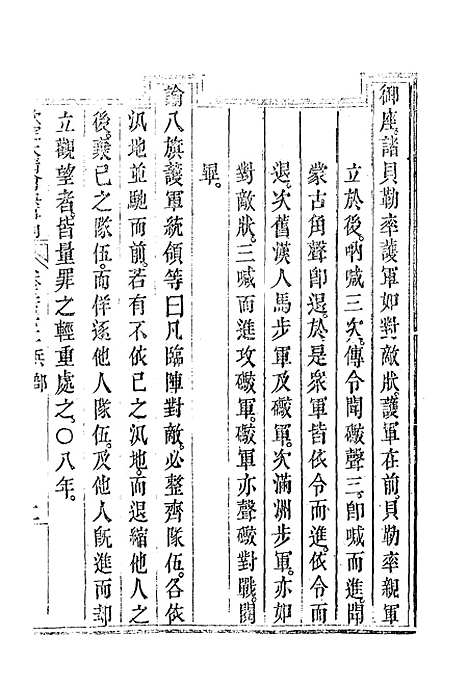 御座。諸貝勒率護軍如對敵狀。護軍在前。貝勒率親軍
立於後。吶喊三次。傳令聞礮聲三。卽喊而進。聞
蒙古角聲卽退。於是衆軍皆依令而進。依令而
退。次舊漢人馬步軍及礮軍。次滿洲步軍。亦如
對敵狀。三喊而進攻礮軍。礮軍亦聲礮對戰。閱
畢。
諭八旗護軍統領等曰。凡臨陣對敵。必整齊隊伍。各依
汛地並馳而前。若有不依已之汛地。而退縮他人之
後。棄已之隊伍。而佯逐他人隊伍。及他人旣進而却
立觀望者。皆量罪之輕重處之。〇八年。
兵部